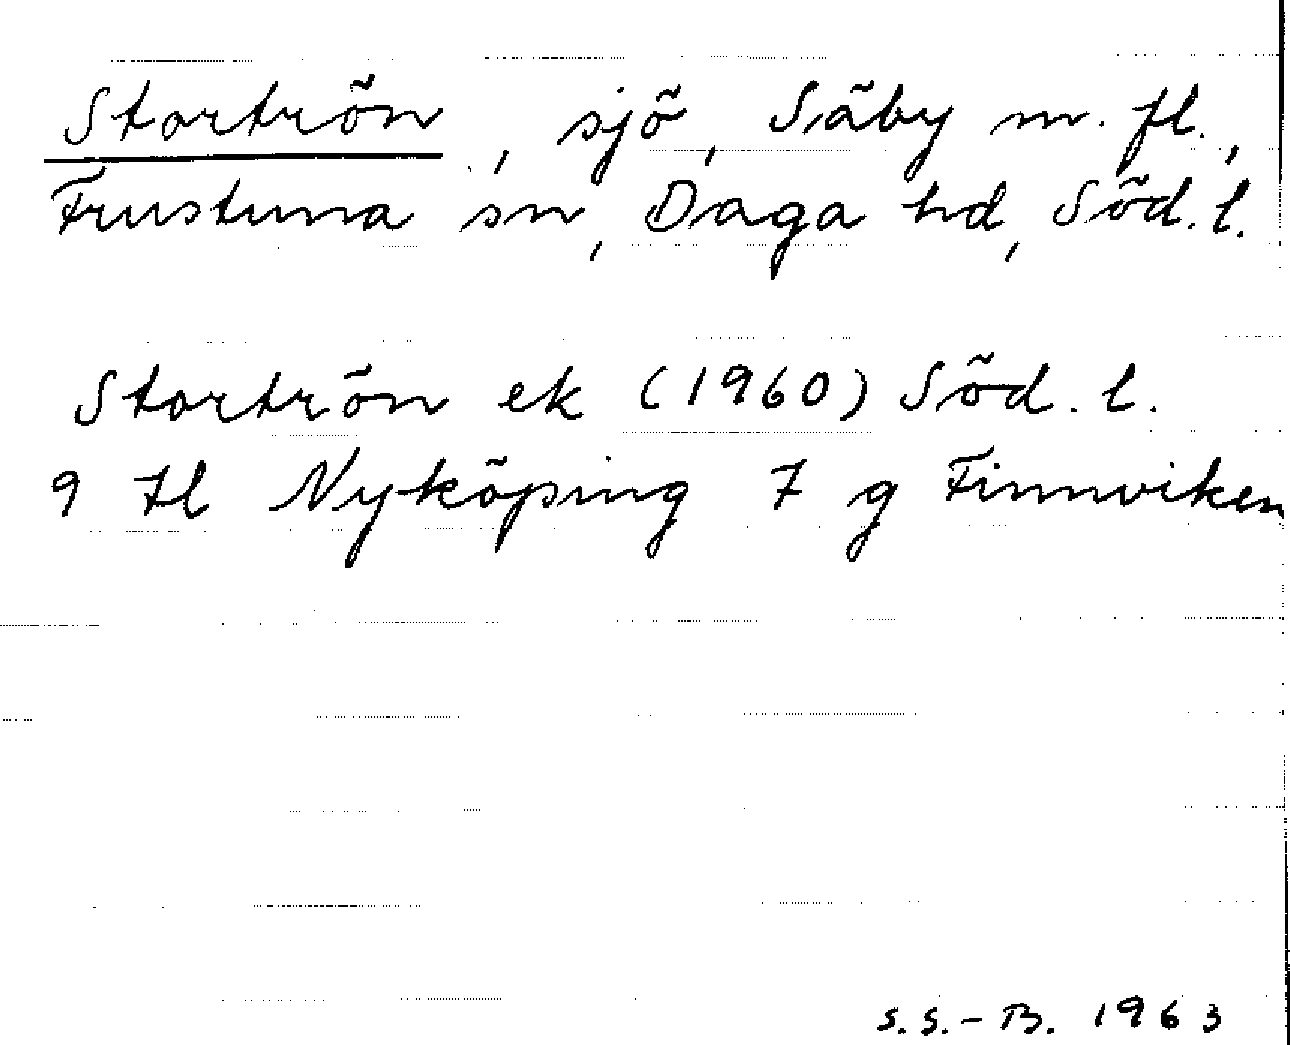 Stortrön, sjö, Säby m. fl.,
Frustuna sn, Daga hd, Söd. l.
Stortrön ek (1960) Söd. l.
9 H Nyköping 7 g Finnviken
S.S.-B. 1963